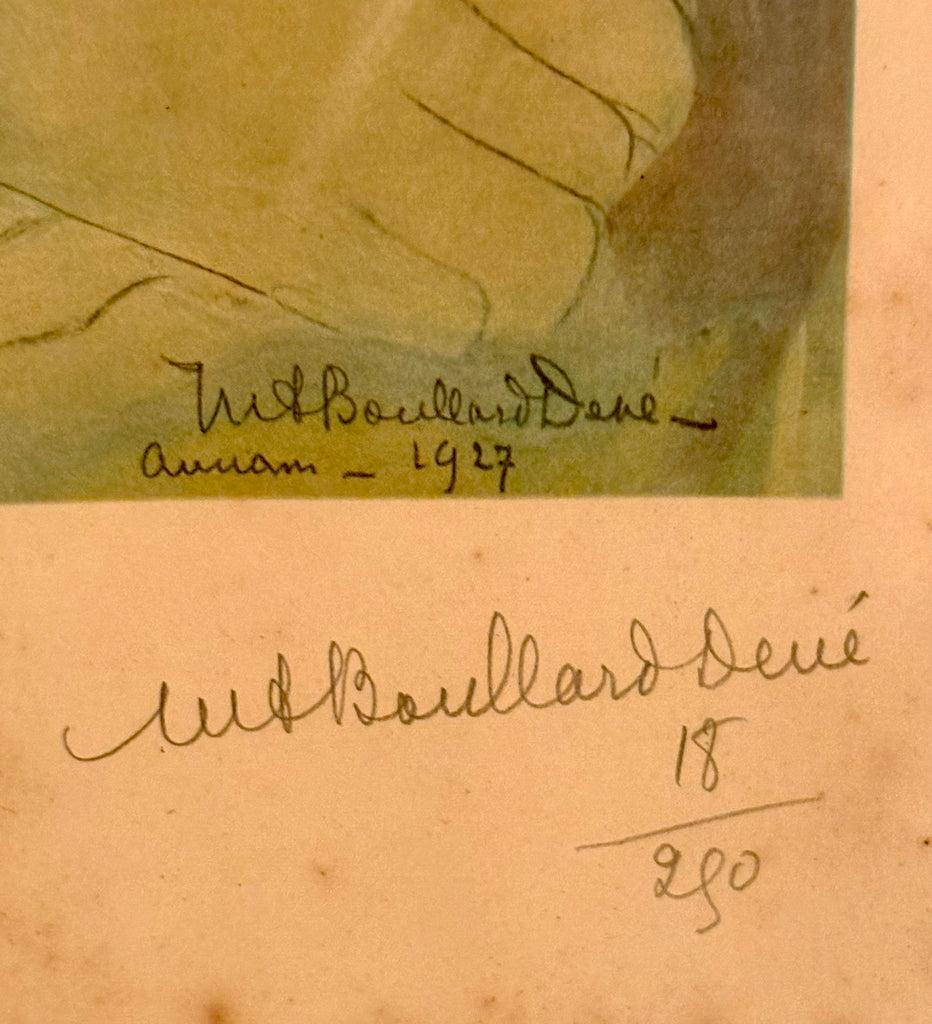 MABoullardDevé –
Annam – 1927
MABoullardDevé
18
250